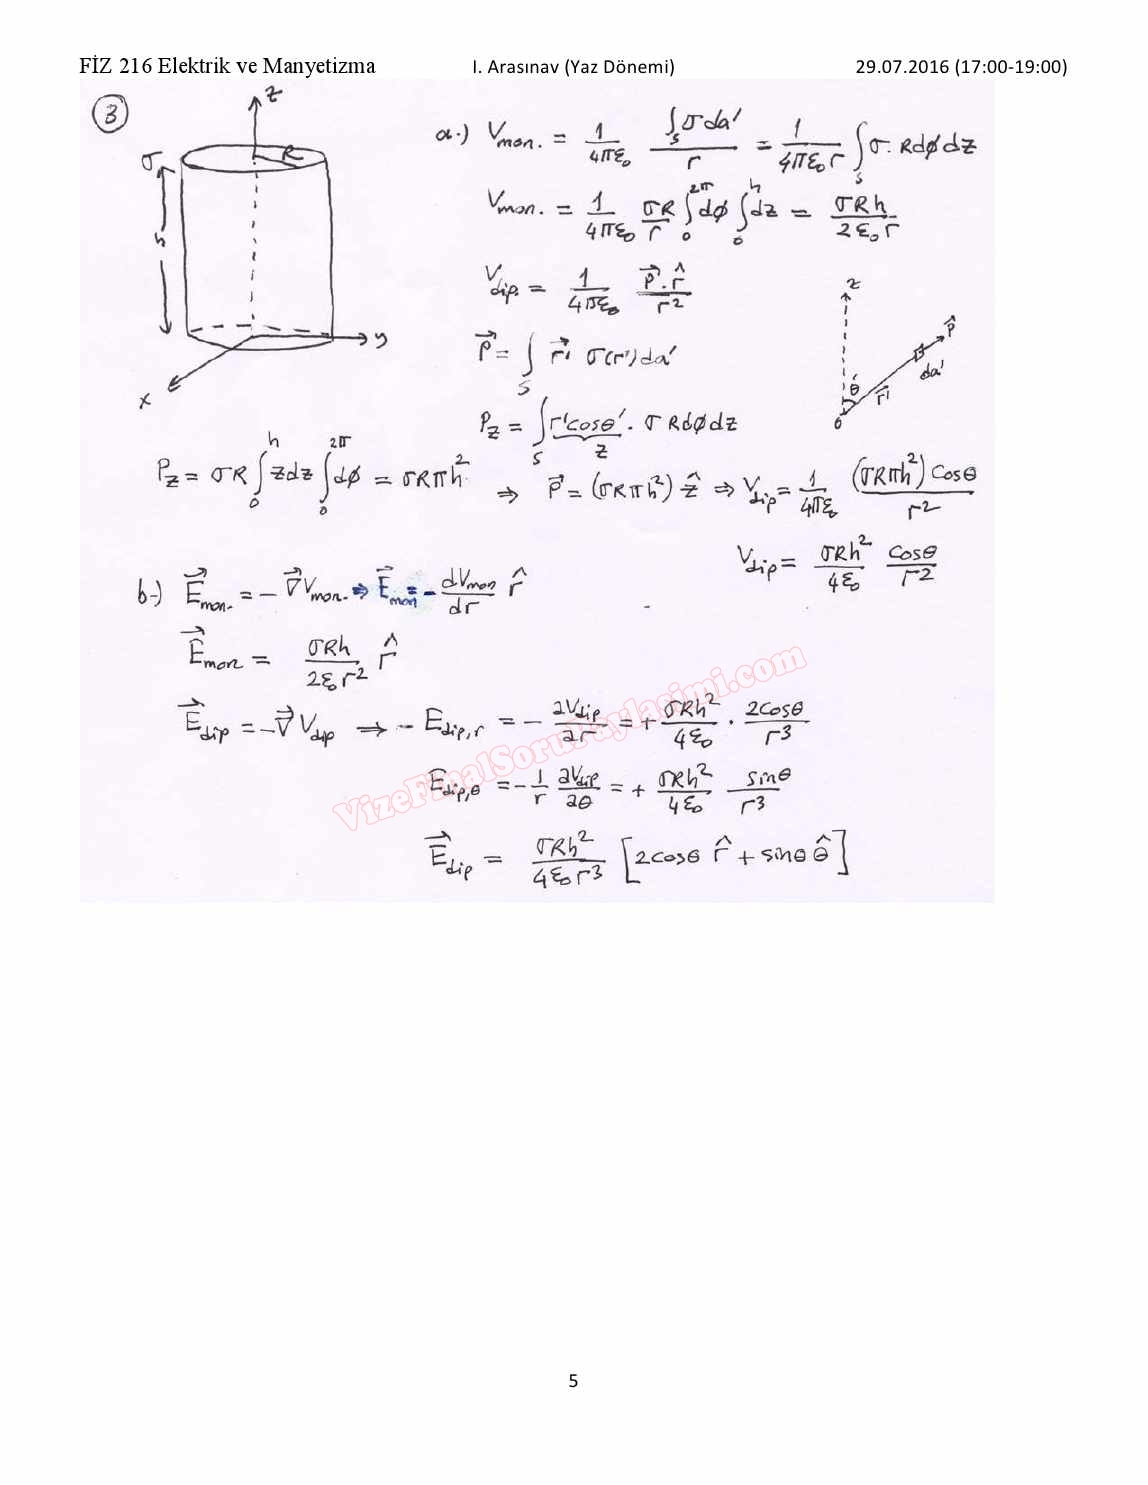 FİZ 216 Elektrik ve Manyetizma I. Arasınav (Yaz Dönemi) 29.07.2016 (17:00-19:00)
3
z
σ R
h
y
x
a-) V_mon. = 1/4πε₀ ∫_S σ da' / r = 1/4πε₀r ∫_S σ. R dϕ dz
V_mon. = 1/4πε₀ σR/r ∫₀^2π dϕ ∫₀^h dz = σRh/2ε₀r
V_dip. = 1/4πε₀ p⃗.r̂/r²
p⃗ = ∫_S r⃗' σ(r') da'
z
p⃗
da'
θ'
r⃗'
0
P_z = ∫_S r'cosθ' . σ R dϕ dz
z
P_z = σR ∫₀^h z dz ∫₀^2π dϕ = σRπh² ⇒ p⃗ = (σRπh²) ẑ ⇒ V_dip = 1/4πε₀ (σRπh²) cosθ / r²
V_dip = σRh²/4ε₀ cosθ/r²
b-) E⃗_mon. = -∇⃗V_mon. ⇒ E⃗_mon = - dV_mon/dr r̂
E⃗_mon = σRh/2ε₀r² r̂
E⃗_dip = -∇⃗V_dip ⇒ - E_dip,r = - ∂V_dip/∂r = + σRh²/4ε₀ . 2cosθ/r³
E_dip,θ = - 1/r ∂V_dip/∂θ = + σRh²/4ε₀ sinθ/r³
E⃗_dip = σRh²/4ε₀r³ [2cosθ r̂ + sinθ θ̂]
VizeFinalSoruPaylasimi.com
5